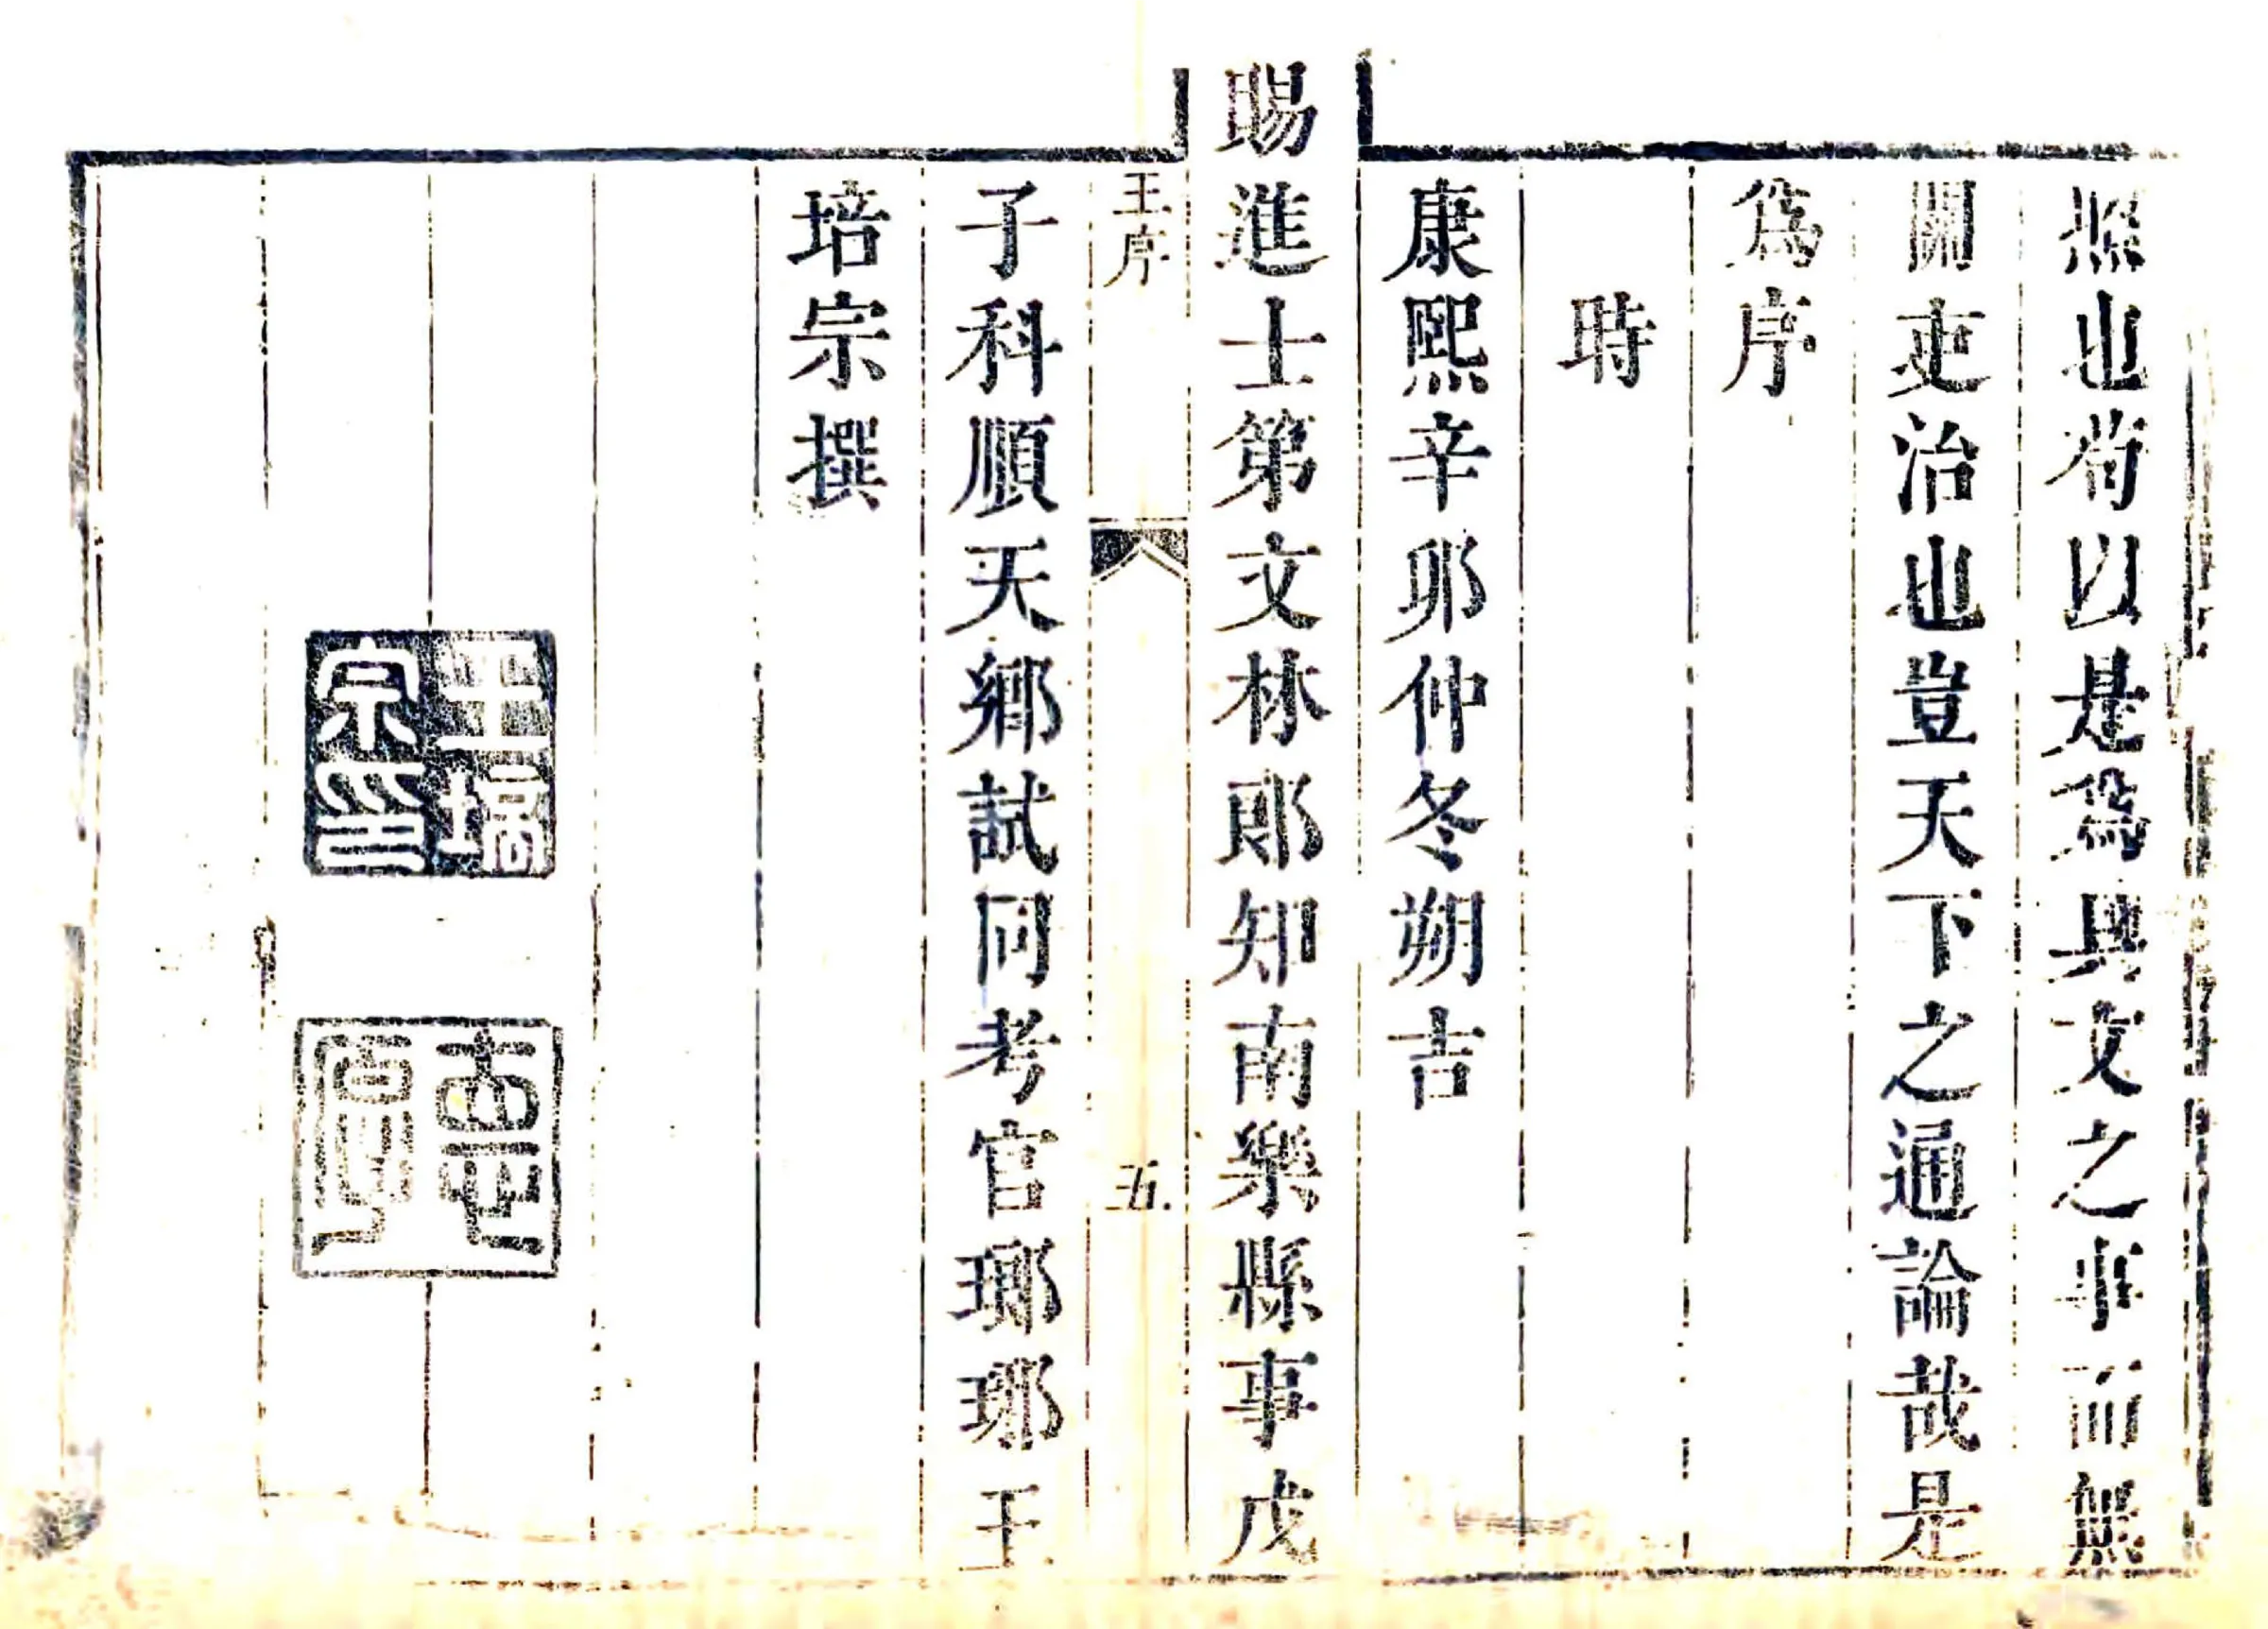 照也苟以是爲具文之事而無
關吏治也豈天下之通論哉是
爲序
時
康熙辛卯仲冬朔吉
賜進士第文林郎知南樂縣事戊
王序 五
子科順天鄉試同考官瑯琊王
培宗撰
王培
宗印